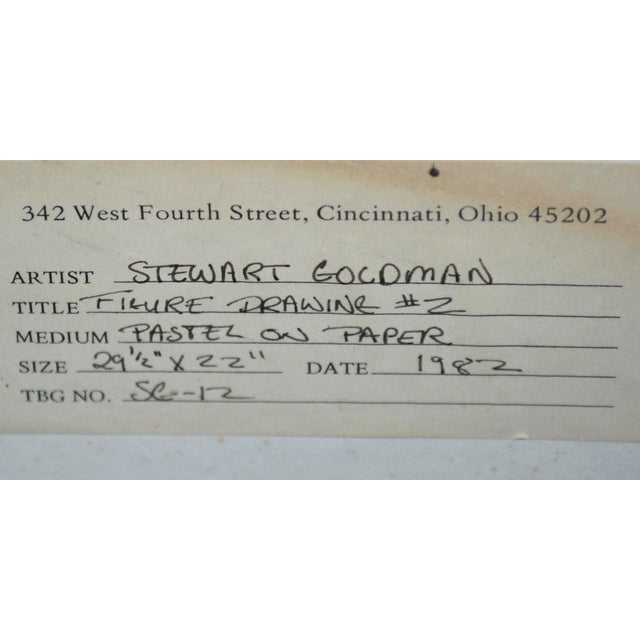 342 West Fourth Street, Cincinnati, Ohio 45202
ARTIST STEWART GOLDMAN
TITLE FIGURE DRAWING #2
MEDIUM PASTEL ON PAPER
SIZE 29 1/2" X 22" DATE 1982
TBG NO. SG-12